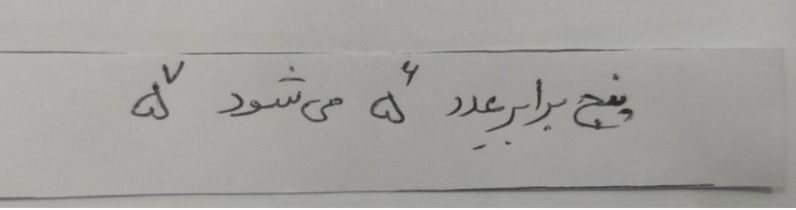 پنج برابر عدد ۵^۶ می‌شود ۵^۷